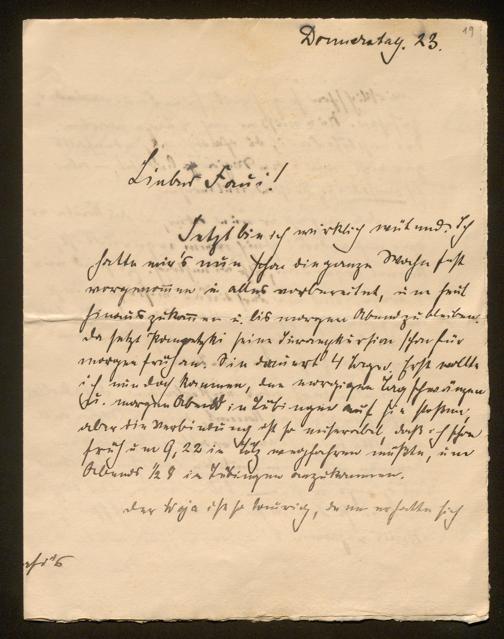 19
Donnerstag. 23.
Lieber Fani!
Jetzt bin ich wirklich wütend. Ich
hatte mir's nun schon die ganze Woche fest
vorgenommen u. alles vorbereitet, um heut
hinauszukommen u. bis morgen Abend zu bleiben.
da setzt seine schon für
morgen früh an. Sie dauert 4 Tage. Erst wollte
ich nun doch kommen, den morgigen Tag schwänzen
u. morgen Abend in Tübingen auf sie stoßen,
aber die Verbindung ist so miserabel, daß ich schon
früh um 9,22 in wegfahren müßte, um
Abends ½8 in Tübingen anzukommen.
Der ist so traurig, denn er hatte sich